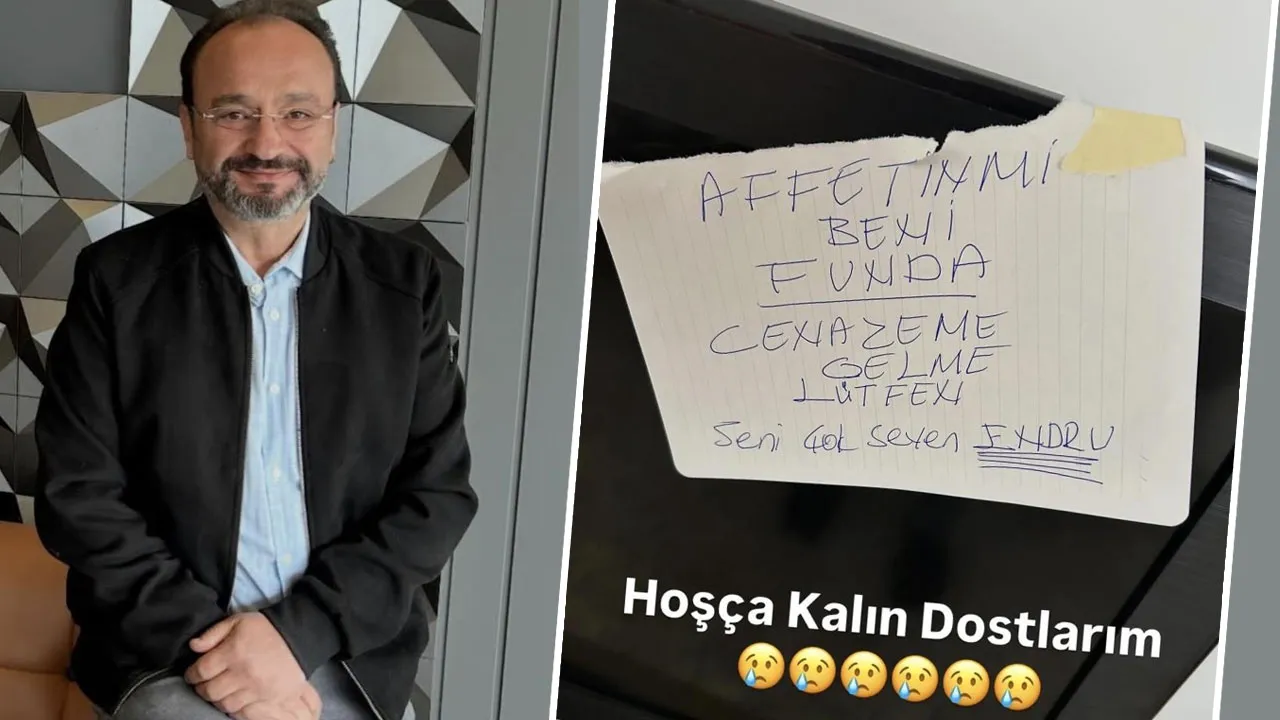 AFFETİNMİ
BENİ
FUNDA
CENAZEME
GELME
LÜTFEN
Seni çok seven ENDRU
Hoşça Kalın Dostlarım
😢😢😢😢😢😢